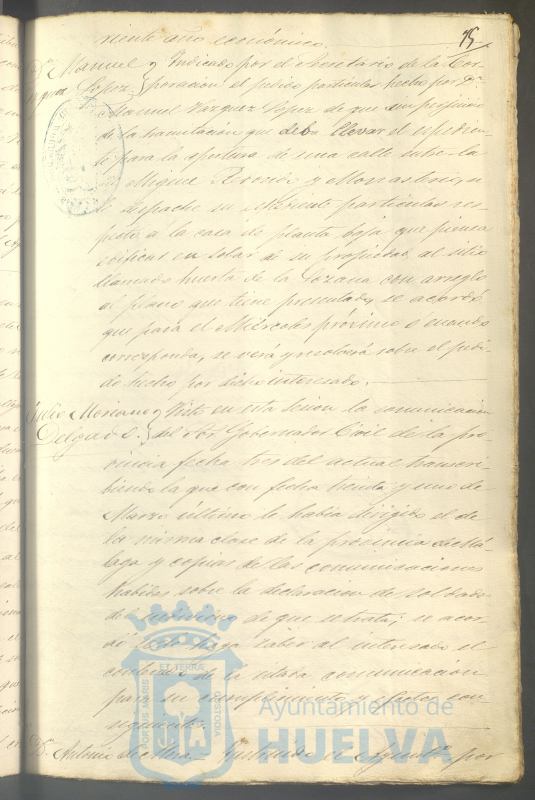 75
riente año económico.
Dn. Manuel Indicado por el Secretario de la Cor-
Lopez poracion el pedido particular hecho por Dn.
Manuel Vázquez Lopez de que sin perjuicio
de la tramitacion que deba llevar el espedien-
te para la apertura de una calle entre la
de Miguel Redondo y Monasterio, se
le despache su espediente particular res-
pecto a la casa de planta baja que piensa
edificar en solar de su propiedad al sitio
llamado huerta de la Lozana con arreglo
al plano que tiene presentado, se acordó
que para el Miércoles próximo ó cuando
corresponda, se verá y resolverá sobre el pedi-
do hecho por dicho interesado.
Julio Moriano Visto en esta sesion la comunicacion
Delgado. del Sor. Gobernador Civil de la pro-
vincia fecha tres del actual transcri-
biendo la que con fecha treinta y uno de
Marzo último le habia dirigido el de
la misma clase de la provincia de Má-
laga y copias de las comunicaciones
habidas sobre la declaracion de soldado
de que se trata; se acor-
dó se haga saber al interesado el
contenido de la citada comunicacion
para su cumplimiento y efectos con-
siguientes.
Dn. Antonio de Mora por
PORTUS MARIS
ET TERRAE
CUSTODIA
Ayuntamiento de
HUELVA